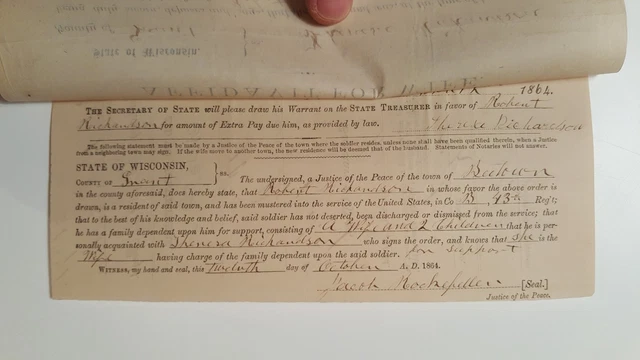 1864.
The Secretary of State will please draw his Warrant on the State Treasurer in favor of Robert
Richardson for amount of Extra Pay due him, as provided by law. Richardson
The following statement must be made by a Justice of the Peace of the town where the soldier resides, unless none shall have been qualified therein, when a Justice
from a neighboring town may sign. If the wife move to another town, the new residence will be deemed that of the husband. Statements of Notaries will not answer.
STATE OF WISCONSIN, } ss.
County of Grant The undersigned, a Justice of the Peace of the town of Beetown
in the county aforesaid, does hereby state, that Robert Richardson in whose favor the above order is
drawn, is a resident of said town, and has been mustered into the service of the United States, in Co B, 43rd Reg't;
that to the best of his knowledge and belief, said soldier has not deserted, been discharged or dismissed from the service; that
he has a family dependent upon him for support, consisting of a Wife and 2 Children that he is per-
sonally acquainted with Richardson who signs the order, and knows that She is the
Wife having charge of the family dependent upon the said soldier. for support
Witness, my hand and seal, this twelvth day of October A. D. 1864.
Jacob Rockefeller [Seal.]
Justice of the Peace.
State of Wisconsin.